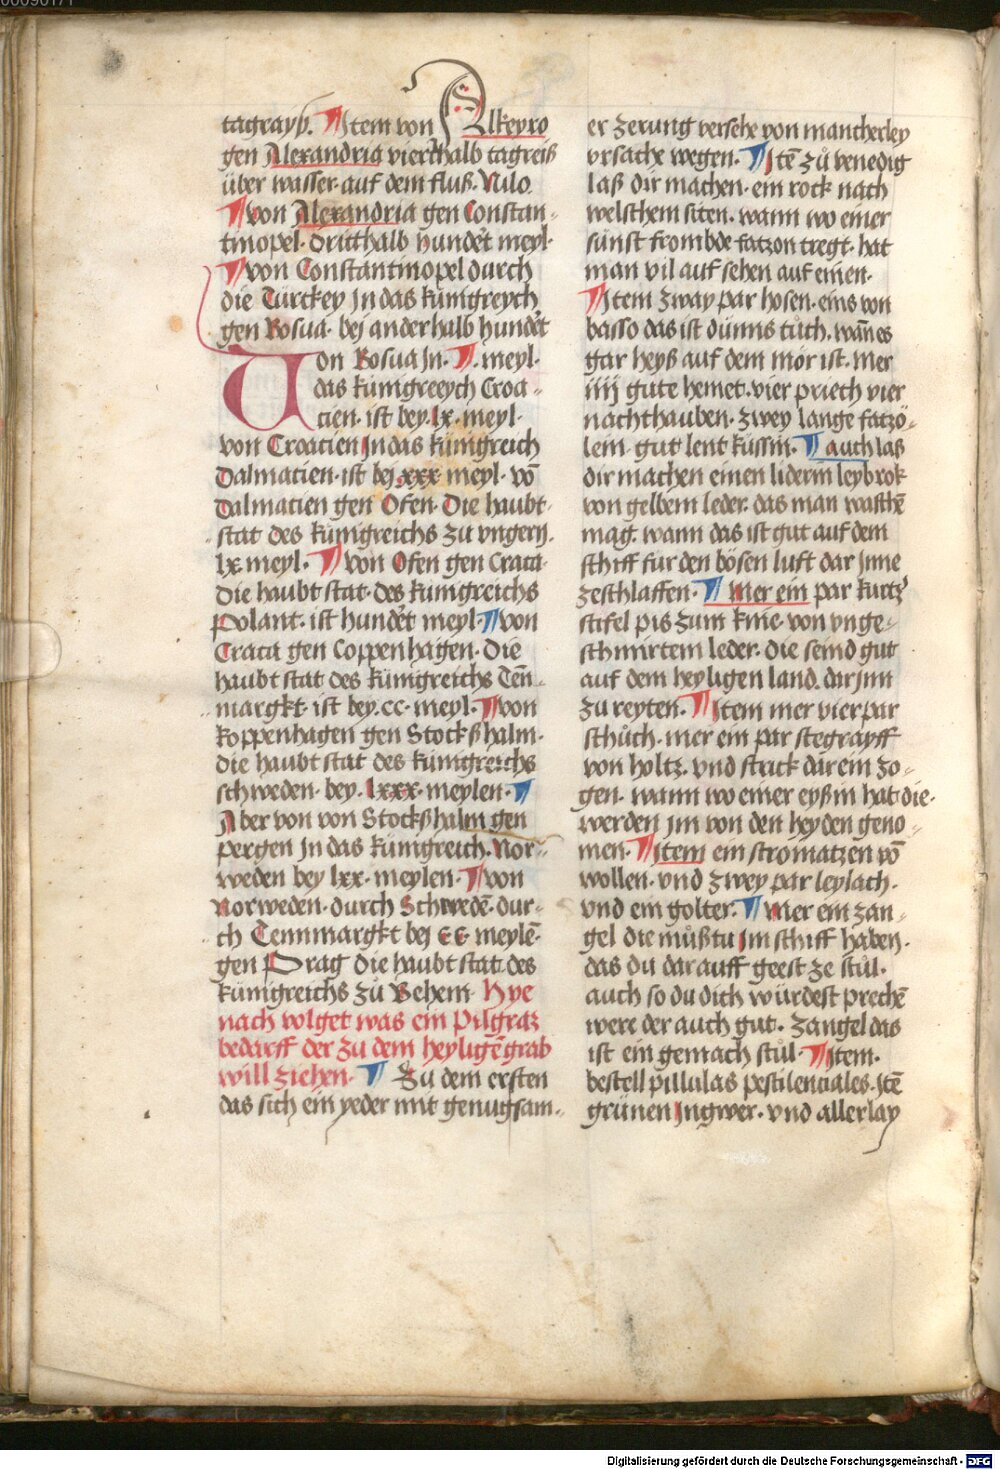 00090171
tagrayß. ¶ Jtem von Alkeyro
gen Alexandria vierthalb tagreiß
über wasser auf dem fluß. Nilo
¶ von Alexandria gen Constan-
tinopel. dritthalb hundet meyl.
¶ von Constantinopel durch
die Türckey in das künigreych
gen Bosua. bej anderhalb hundet
Uon Bosua jn. ¶. meyl.
das künigreeych Croa-
cien. ist bey. lx. meyl.
von Croacien Jn das künigreich
Dalmacien. ist bej xxx meyl. vō
Dalmacien gen Ofen. Die haubt-
stat des künigreichs zu vngern.
lx meyl. ¶ von Ofen gen Craca
die haubt stat. des künigreichs
Polant. ist hundet meyl. ¶ von
Craca gen Coppenhagen. Die
haubt stat des künigreichs Ten-
margkt ist bey. cc. meyl. ¶ von
koppenhagen gen Stockßhalm.
die haubt stat des künigreichs
schweden. bey. lxxx. meylen. ¶
Aber von von Stockßhalm gen
pergen Jn das künigreich. Nor-
weden bey lxx. meylen. ¶ von
Norweden. durch Schwedē. dur-
ch Tennmargkt bej cc meylē.
gen Prag die haubt stat des
künigreichs zu Behem. Hye
nach volget was ein Pilgraz
bedarff der zu dem heyligē grab
will ziehen. ¶ Zu dem ersten
das sich ein yeder mit genugsam-
er zerung versehe von mancherley
vrsache wegen. ¶ Jtē zu venedig
laß dir machen. ein rock nach
welschem siten. wann wo einer
sunst frombde fatzon tregt. hat
man vil auf sehen auf einen.
¶ Jtem zway par hosen. eins von
basso das ist dünns tuch. wān es
gar heyß auf dem mör ist. mer
iiij gute hemet. vier priech vier
nachthauben. zwey lange fatzö-
lein. gut lent küssin. ¶ auch laß
dir machen einen liderin leybrok
von gelbem leder. das man waschē
mag. wann das ist gut auf dem
schiff für den bösen luft dar jnne
zeschlaffen. ¶ Mer ein par kurtz
stifel pis zum knie. von vnge-
schmirtem leder. die seind gut
auf dem heyligen land. dar jnn
zu reyten. ¶ Jtem mer vier par
schuch. mer ein par stegrayff
von holtz. vnd strick dar ein zo-
gen. wann wo einer eyßin hat die.
werden jm von den heyden geno-
men. ¶ Jtem ein stromatzen vō
wollen. vnd zwey par leylach.
vnd ein golter. ¶ Mer ein zan-
gel die mußtu jm schiff haben.
das du dar auff geest ze stul.
auch so du dich würdest prechē
were der auch gut. zangel das
ist ein gemach stul. ¶ Jtem.
bestell pillulas pestilenciales. Jtē
grünen Jngwer. vnd allerlay
Digitalisierung gefördert durch die Deutsche Forschungsgemeinschaft - DFG